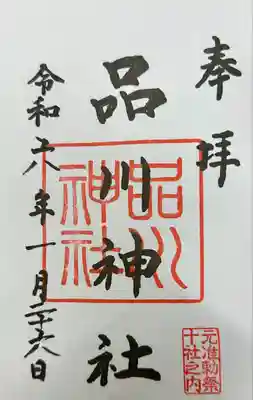 奉拝
品川神社
品川神社
元准勅祭
十社之内
令和六年一月二十六日